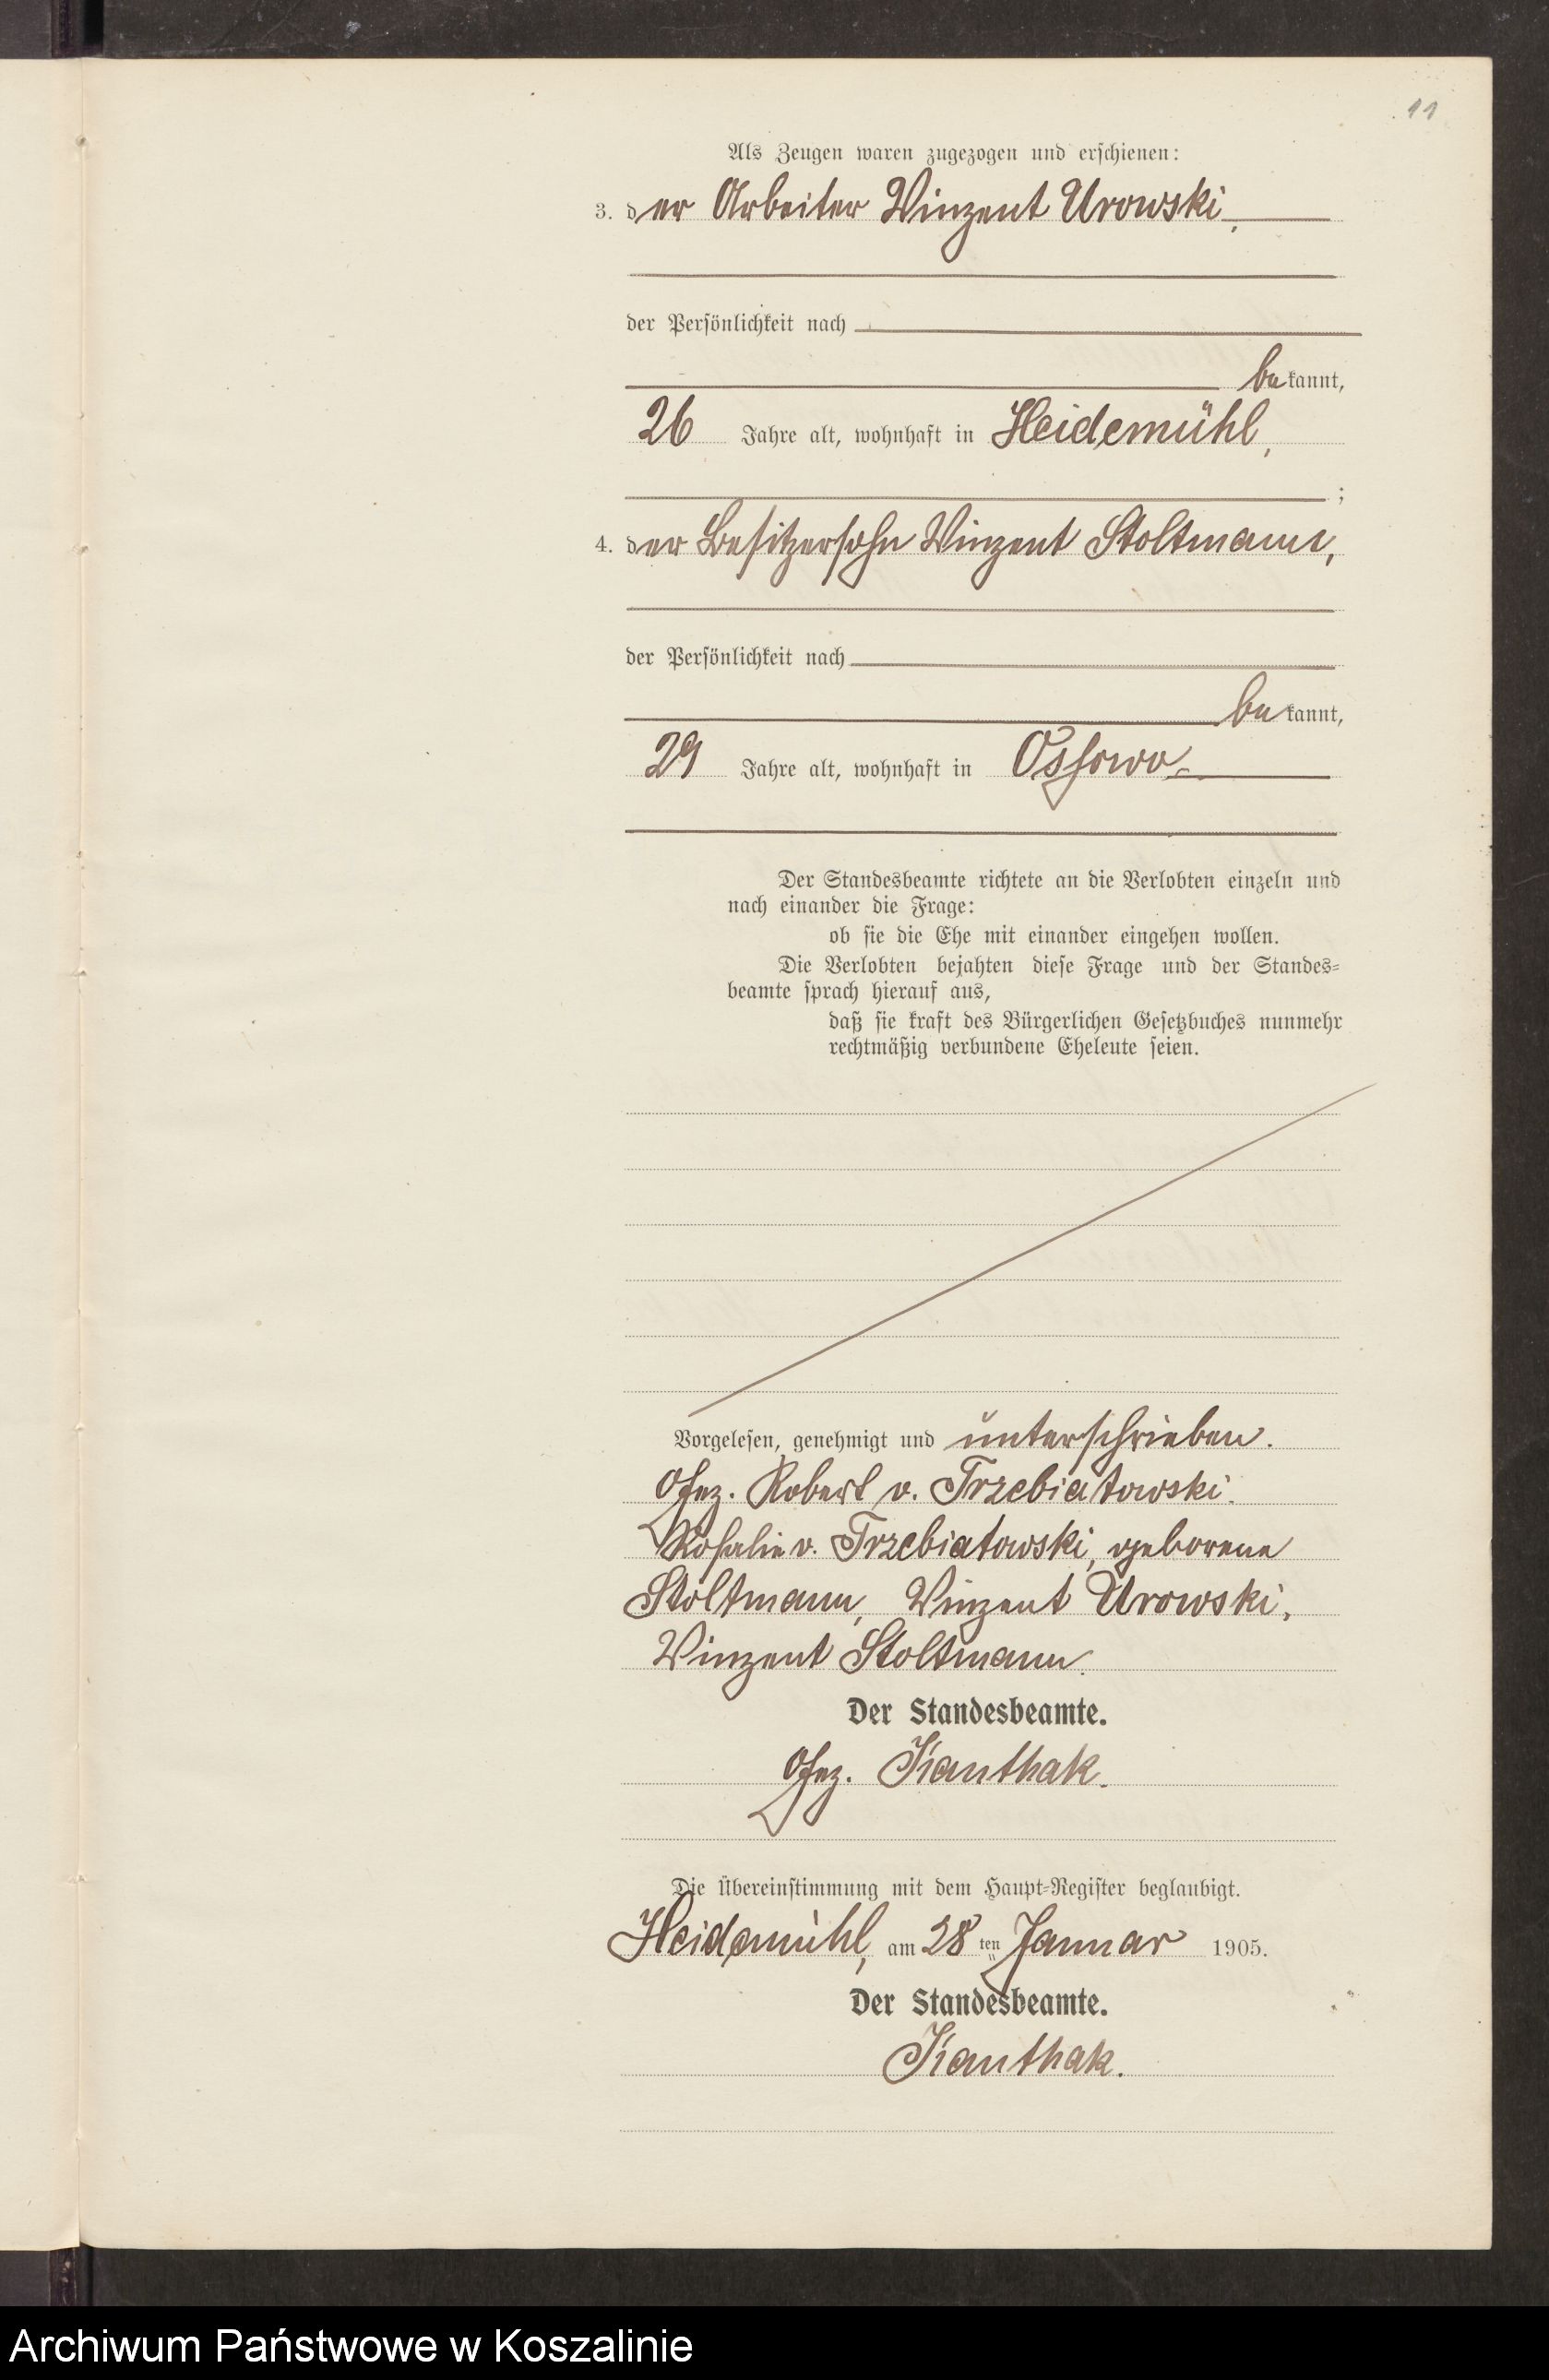 11
Als Zeugen waren zugezogen und erschienen:
3. der Arbeiter Winzent Urowski,
der Persönlichkeit nach
bekannt,
26 Jahre alt, wohnhaft in Heidemühl,
;
4. der Besitzersohn Winzent Stoltmann,
der Persönlichkeit nach
bekannt,
29 Jahre alt, wohnhaft in Ossowo
Der Standesbeamte richtete an die Verlobten einzeln und
nach einander die Frage:
ob sie die Ehe mit einander eingehen wollen.
Die Verlobten bejahten diese Frage und der Standes-
beamte sprach hierauf aus,
daß sie kraft des Bürgerlichen Gesetzbuches nunmehr
rechtmäßig verbundene Eheleute seien.
Vorgelesen, genehmigt und unterschrieben.
Gez. Robert v. Trzebiatowski.
Rosalie v. Trzebiatowski, geborene
Stoltmann, Winzent Urowski,
Winzent Stoltmann.
Der Standesbeamte.
Gez. Kanthak.
Die Übereinstimmung mit dem Haupt-Register beglaubigt.
Heidemühl, am 28ten Januar 1905.
Der Standesbeamte.
Kanthak.
Archiwum Państwowe w Koszalinie